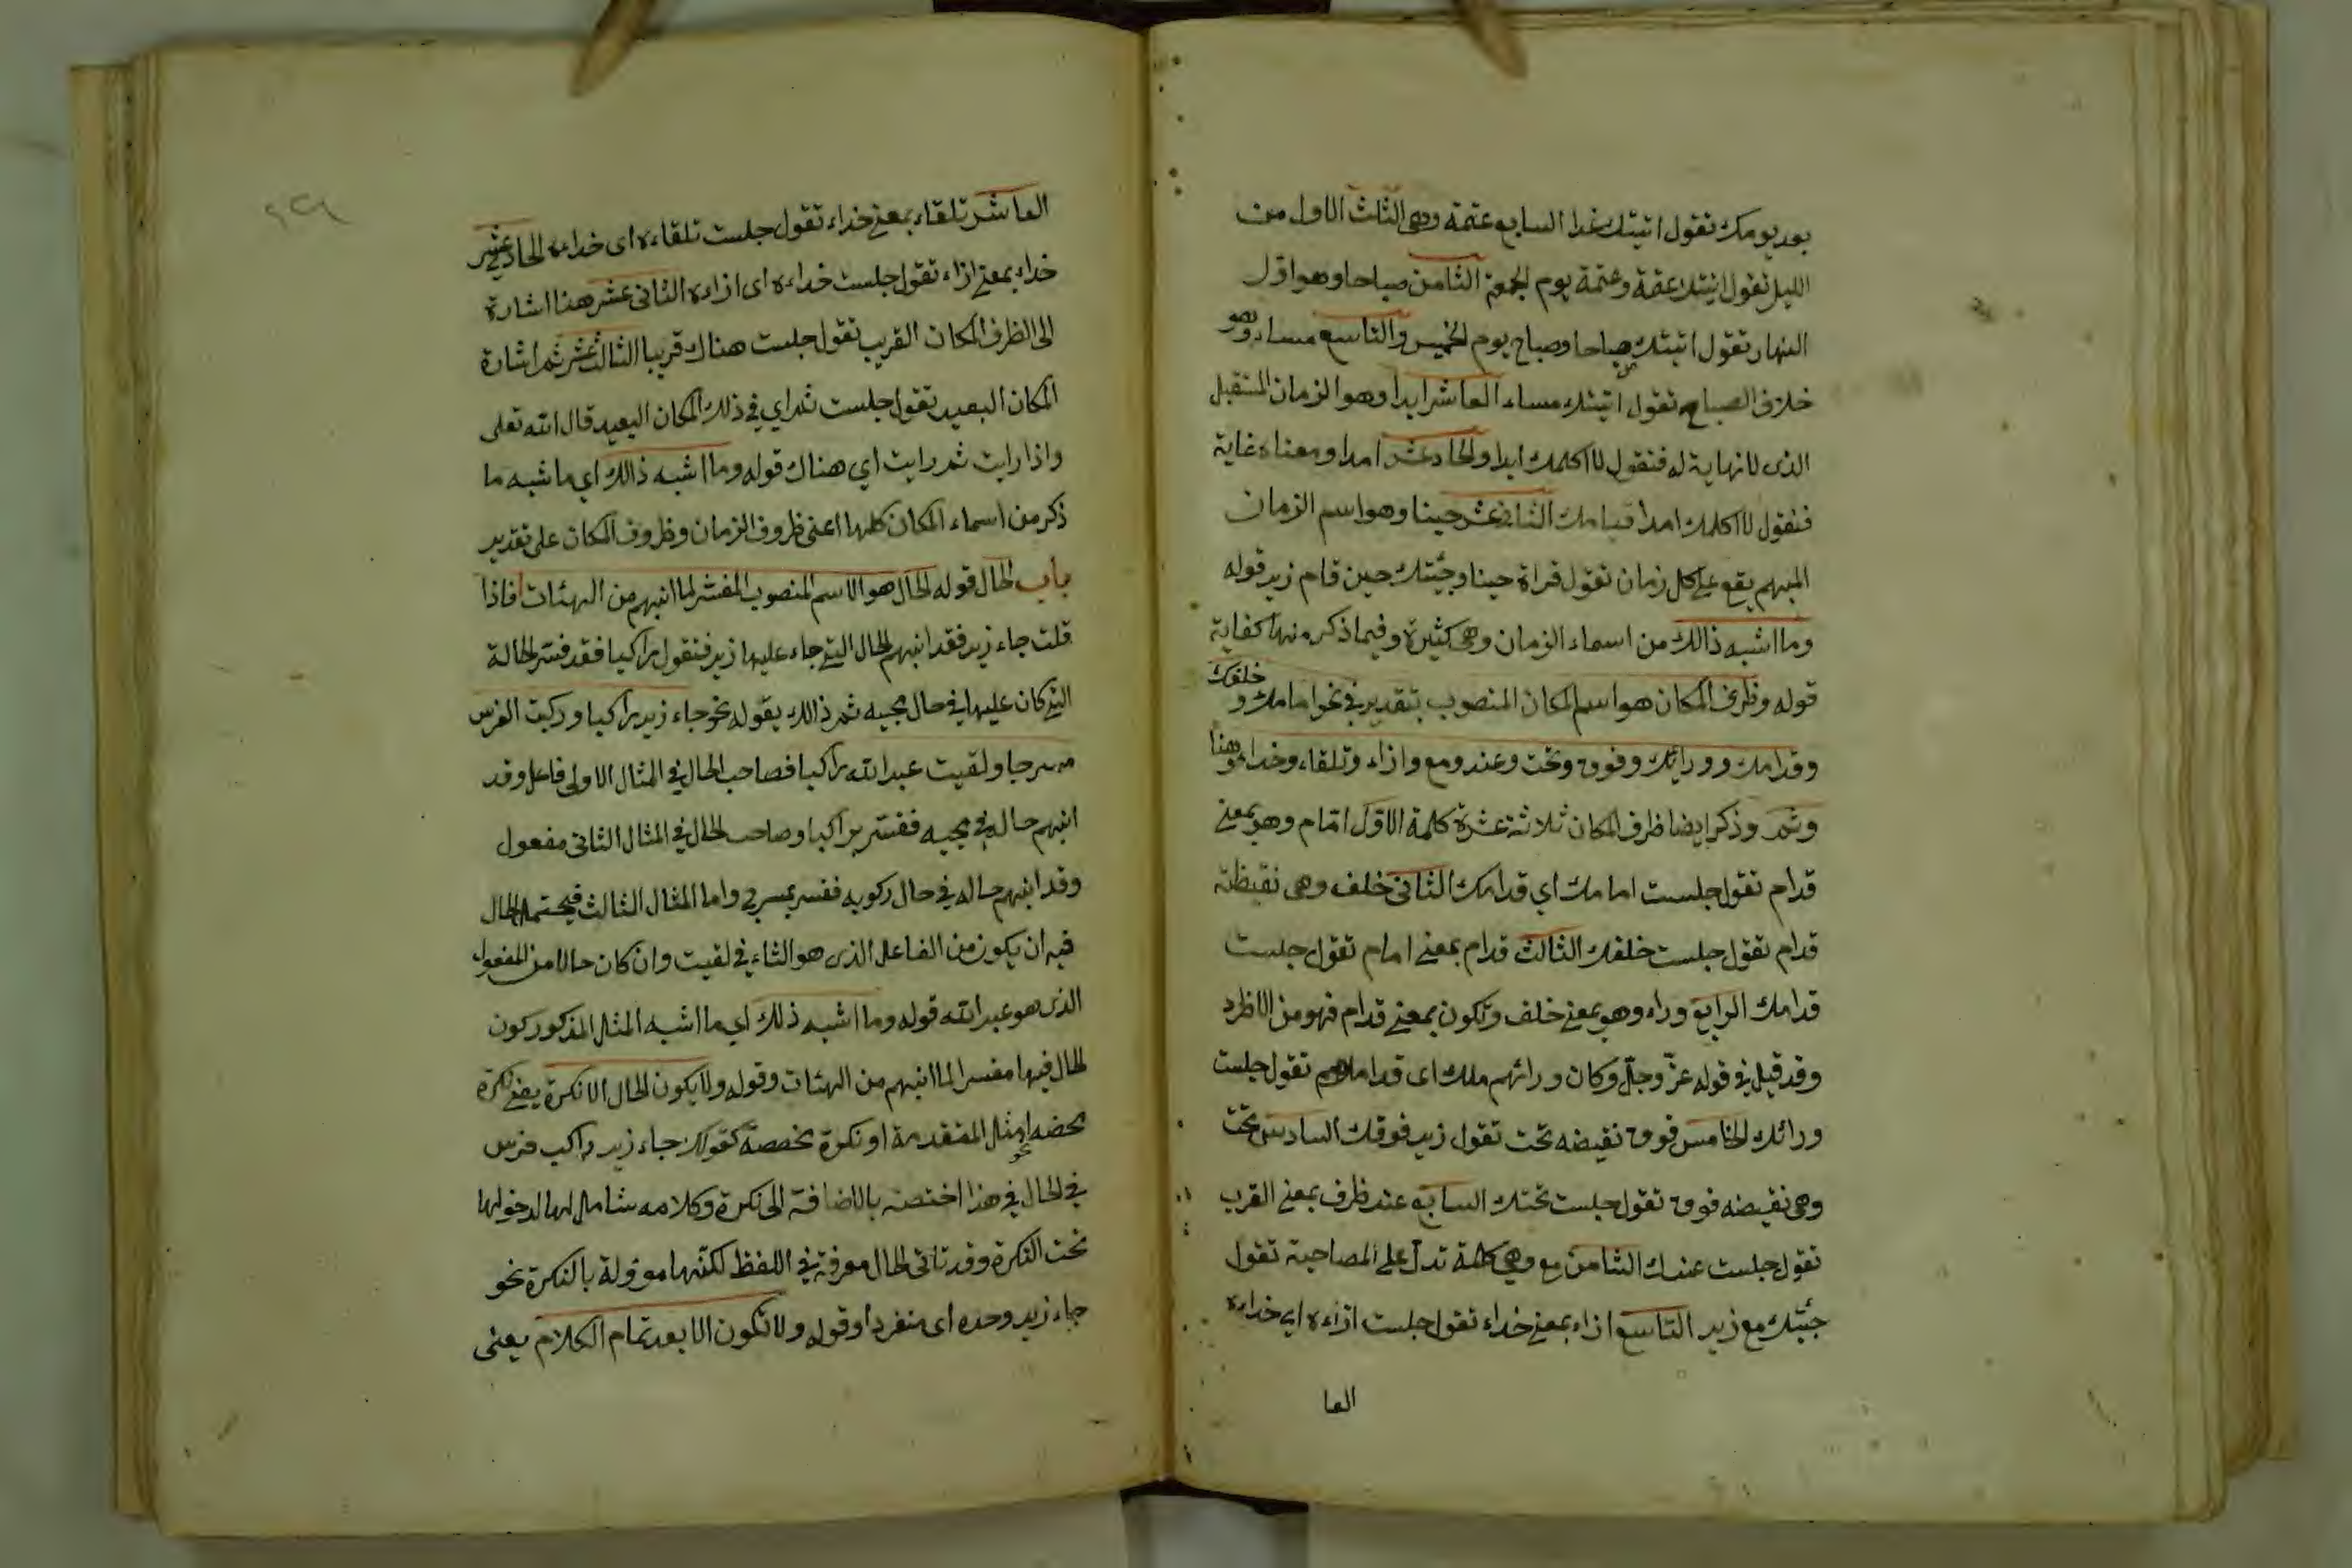 بعد يومك تقول اتيتك غدا السابع عتمة وهى الثلث الاول من
الليل تقول اتيتك عتمة وعتمة يوم الجمعة الثامن صباحا وهو اول
النهار تقول اتيتك صباحا وصباح يوم الخميس والتاسع مساء وهو
خلاف الصباح تقول اتيتك مساء العاشر ابدا وهو الزمان المستقبل
الذى لا نهاية له فتقول لا اكلمك ابدا والحاد عشر امدا ومعناه غاية
فتقول لا اكلمك امدا قيامك الثانى عشر حينا وهو اسم الزمان
المبهم يقع على كل زمان تقول قراة حينا وجئتك حين قام زيد قوله
وما اشبه ذالك من اسماء الزمان وهى كثيرة وفيما ذكر منها كفاية
قوله وظرف المكان هو اسم المكان المنصوب بتقدير فى نحو امامك و خلفك
وقدامك وورائك وفوق وتحت وعند ومع وازاء وتلقاء وخداء وهنا
وثم وذكر ايضا ظرف المكان ثلاثة عشرة كلمة الاول امام وهو بمعنى
قدام تقول جلست امامك اي قدامك الثانى خلف وهى نقيظة
قدام تقول جلست خلفك الثالث قدام بمعنى امام تقول جلست
قدامك الرابع وراء وهو بمعنى خلف وتكون بمعنى قدام فهو من الاظرد
وقد قيل فى قوله عزّ وجلّ وكان ورائهم ملك اى قدامهم تقول جلست
ورائك الخامس فوق نقيضه تحت تقول زيد فوقك السادس تحت
وهى نقيضه فوق تقول جلست تحتك السابع عند ظرف بمعنى القرب
تقول جلست عندك الثامن مع وهى كلمة تدل على المصاحبة تقول
جئتك مع زيد التاسع ازاء بمعنى خداء تقول جلست ازاءه اي خداءه
العا
العاشر تلقاء بمعنى خداء تقول جلست تلقاءه اى خداءه الحادى عشر
خداء بمعنى ازاء تقول جلست خداءه اى ازاءه الثانى عشر هنا اشارة
الى الظرف المكان القريب تقول جلست هناك قريبا الثالث عشر ثم اشارة
المكان البعيد تقول جلست ثم اي فى ذلك المكان البعيد قال الله تعلى
واذا رايت ثم رايت اي هناك قوله وما اشبه ذالك اي ما شبه ما
ذكر من اسماء المكان كلها اعنى ظروف الزمان وظروف المكان على تقدير
باب الحال قوله الحال هو الاسم المنصوب المفسر لما انبهم من الهيئات فاذا
قلت جاء زيد فقد انبهم الحال التى جاء عليها زيد فتقول راكبا فقد فسر الحالة
التى كان عليها فى حال مجيه ثم ذالك بقوله نحو جاء زيد راكبا وركبت الفرس
مسرجا ولقيت عبد الله راكبا فصاحب الحال فى المثال الاولى فاعل وقد
انبهم حاله فى مجيه ففسر براكبا وصاحب الحال فى المثال الثانى مفعول
وقد انبهم حاله فى حال ركوبه ففسر بمسرج واما المثال الثالث فيحتمل الحال
فيه ان يكون من الفاعل الذى هو التاء فى لقيت وان كان حالا من المفعول
الذى هو عبد الله قوله وما اشبه ذلك اي ما اشبه المثل المذكور كون
الحال فيها مفسرا لما انبهم من الهئات وقوله ولا يكون الحال الا نكرة يعنى نكرة
محضه نحو امثل المتقدمة او نكرة مخصصة كقولك جاء زيد راكب فرس
فى الحال فى هذا اختصت بالاضافة الى نكرة وكلامه شامل لها لدخولها
تحت النكرة وقد تاتى الحال معرفة فى اللفظ لكنها موولة بالنكرة نحو
جاء زيد وحده اى منفردا وقوله ولا تكون الا بعد تمام الكلام يعنى